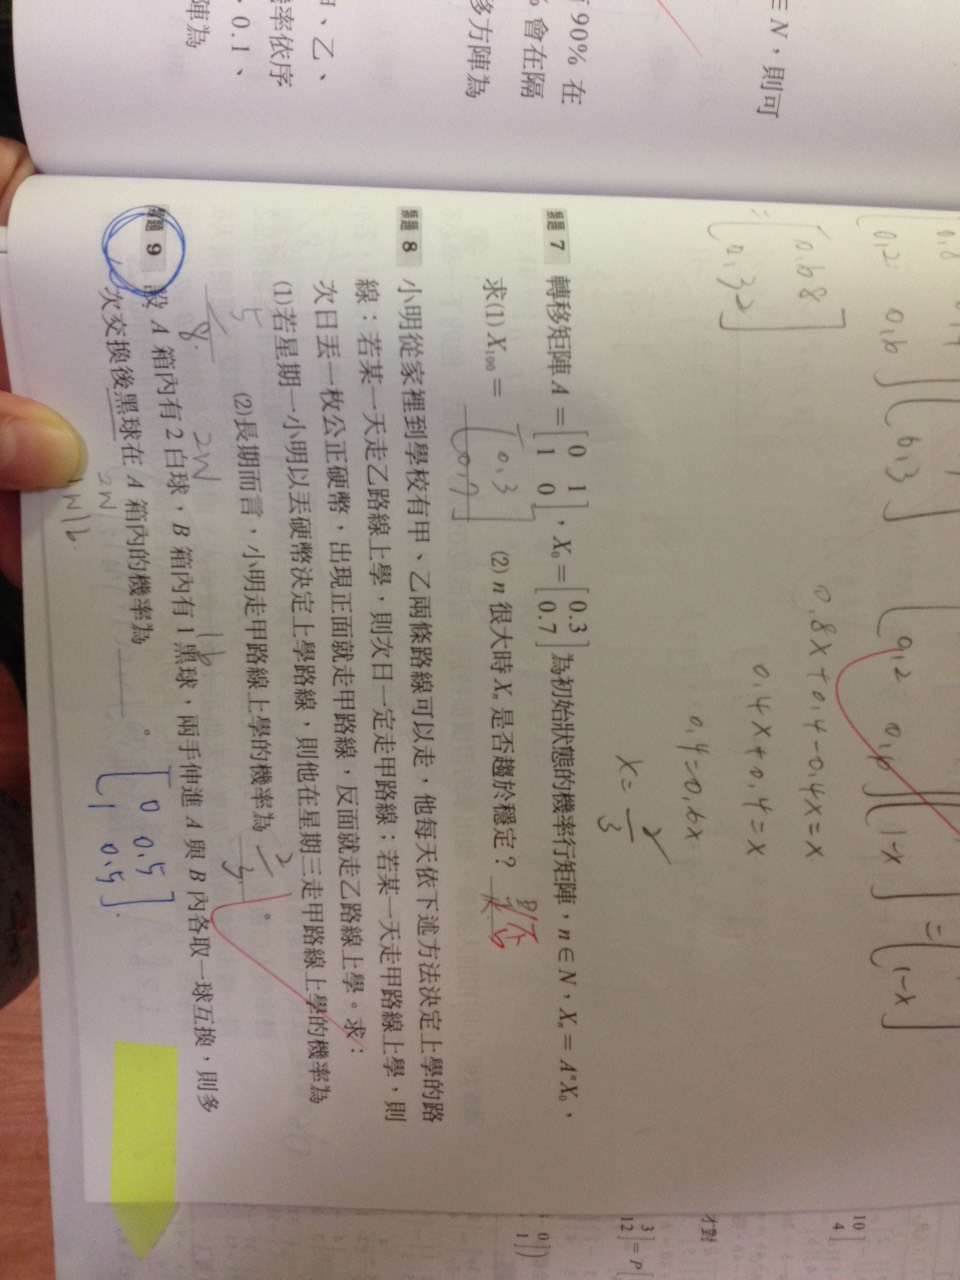 ∈N，則可
有 90% 在
% 會在隔
移方陣為
甲、乙、
機率依序
、0.1、
陣為
0.8
0.2 0.6 0.3
= 0.68
0.32
0.2 0.6 1-x = 1-x
0.8x+0.4-0.4x=x
0.4x+0.4=x
0.4=0.6x
x=2/3
類題 7 轉移矩陣 A = [0 1 1 0]，X₀ = [0.3 0.7] 為初始狀態的機率行矩陣，n∈N，Xₙ = AⁿX₀，
求(1) X₁₀₀ = [0.3 0.7] (2) n 很大時 Xₙ 是否趨於穩定？ 否
類題 8 小明從家裡到學校有甲、乙兩條路線可以走，他每天依下述方法決定上學的路
線：若某一天走乙路線上學，則次日一定走甲路線；若某一天走甲路線上學，則
次日丟一枚公正硬幣，出現正面就走甲路線，反面就走乙路線上學。求：
(1)若星期一小明以丟硬幣決定上學路線，則他在星期三走甲路線上學的機率為
5/8 (2)長期而言，小明走甲路線上學的機率為 2/3 。
2W 1b
類題 9 設 A 箱內有 2 白球，B 箱內有 1 黑球，兩手伸進 A 與 B 內各取一球互換，則多
次交換後黑球在 A 箱內的機率為 。
2W
1W1b
0 0.5
1 0.5
10
4
才對
3
12 = P
0
1